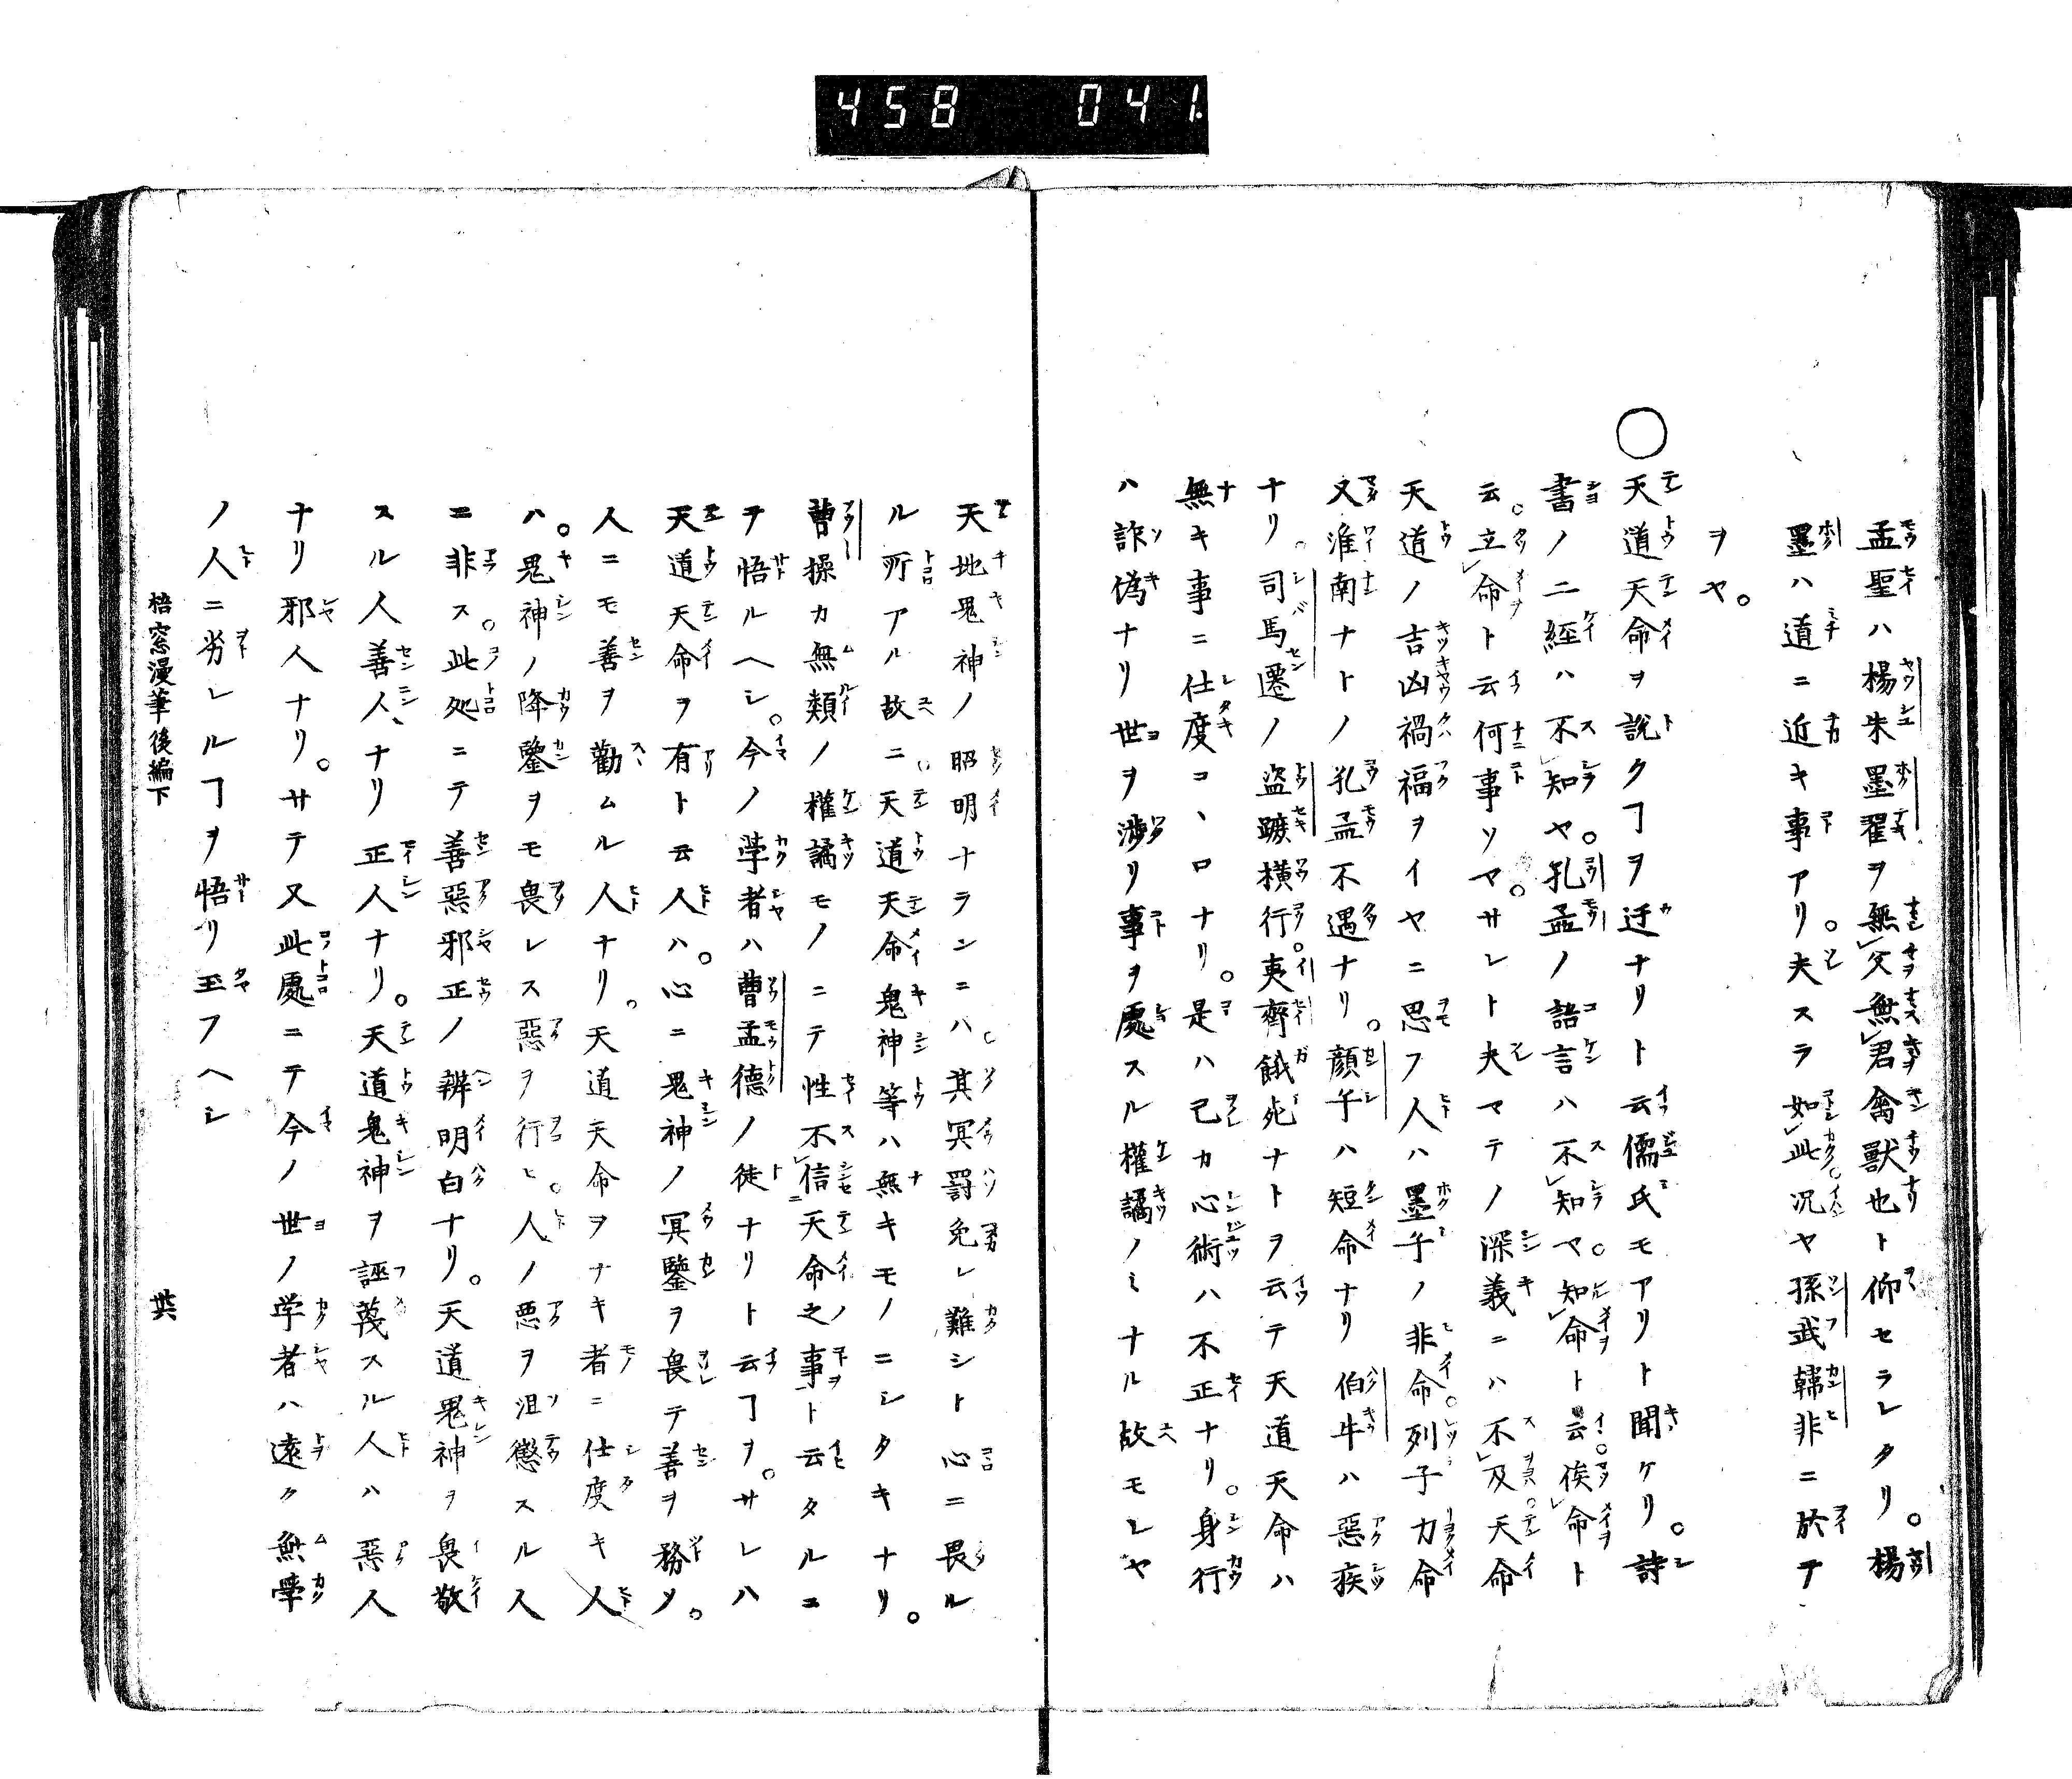 458 041
孟聖ハ楊朱墨翟ヲ無父無君禽獣也ト仰セラレタリ。楊
墨ハ道ニ近キ事アリ。夫スラ如此況ヤ孫武韓非ニ於テ
ヲヤ。
○天道天命ヲ説クヿヲ迂ナリト云儒氏モアリト聞ケリ。詩
書ノ二経ハ不知ヤ。孔孟ノ語言ハ不知ヤ。知命ト云。俟命ト
云。立命ト云何事ソマ。サレト夫マテノ深義ニハ不及。天命
天道ノ吉凶禍福ヲイヤニ思フ人ハ墨子ノ非命。列子力命
又淮南ナトノ孔孟不遇ナリ。顔子ハ短命ナリ伯牛ハ惡疾
ナリ。司馬遷ノ盗蹠横行。夷齊餓死ナトヲ云テ天道天命ハ
無キ事ニ仕度コヽロナリ。是ハ己カ心術ハ不正ナリ。身行
ハ詐偽ナリ世ヲ渉リ事ヲ處スル權譎ノミナル故モシヤ
天地鬼神ノ昭明ナランニハ。其冥罰免レ難シト心ニ畏ル
ル所アル故ニ。天道天命鬼神等ハ無キモノニシタキナリ。
曹操カ無類ノ權譎モノニテ性不信天命之事ト云タルニ
テ悟ルヘシ。今ノ學者ハ曹孟德ノ徒ナリト云ヿヲ。サレハ
天道天命ヲ有ト云人ハ。心ニ鬼神ノ冥鑒ヲ畏テ善ヲ務ソ。
人ニモ善ヲ勸ムル人ナリ。天道天命ヲナキ者ニ仕度キ人
ハ。鬼神ノ降鑒ヲモ畏レス惡ヲ行ヒ。人ノ悪ヲ沮懲スル人
ニ非ス。此処ニテ善惡邪正ノ辨明白ナリ。天道鬼神ヲ畏敬
スル人善人ナリ正人ナリ。天道鬼神ヲ誣蔑スル人ハ惡人
ナリ邪人ナリ。サテ又此處ニテ今ノ世ノ学者ハ遠ク無學
ノ人ニ劣レルヿヲ悟リ玉フヘシ
梧窓漫筆後編下 卅六